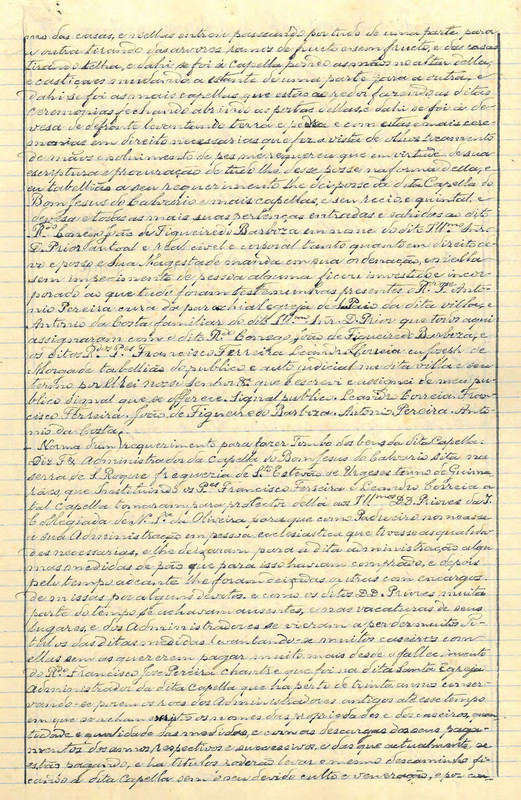 mo das casas, e nellas entrou passeando por tudo de uma parte para
a outra tirando das arvores ramos de fructo e sem fructo, e das casas
tirando telha, e dahi se foi á Capella pondo as mãos no altar della,
e castiçaes mudando a estante de uma parte para a outra, e
dahi se foi ás mais capellas que estão ao redor fazendo as ditas
ceremonias fechando abrindo as portas dellas, e dahi se foi á de-
vesa de defronte levantando terra e pedra e com estas mais cere-
monias em direito necessarias que fez a vista de
de mãos e polvimento de pes me requereu que em virtude de sua
escriptura e procuração de tudo lhe desse posse na forma della, e
eu tabellião a seu requerimento lhe dei posse da dita Capella do
Bom Jesus do Calvario e mais capellas, e seu recio e quintal e
devesa e todas as mais suas pertenças entradas e sahidas ao dito
R.do Conego João de Figueiredo Barboza em nome do dito Ill.mo Snr.
D. Prior autual e real civel e corporal tanto quanto em direito de-
vo e posso e Sua Magestade manda em sua ordenação, e nella
sem impedimento de pessoa alguma ficou investido e incor-
porado ao que tudo foram testemunhas presentes o R.do P.e Anto-
nio Pereira cura da parochial egreja de S. Paio da dita villa, e
Antonio da Costa familiar do dito Ill.mo Snr. D. Prior que todos aqui
assignaram com o dito R.do Conego João de Figueiredo Barboza, e
os ditos R.dos P.es Francisco Ferreira Leandro Correia eu Joseph de
Morgade tabellião do publico e auto judicial na dita villa e seu
termo por El-Rei nosso Senhor &ª que o escrevi e assignei de meu pu-
blico signal que se offerece. Signal publico. Leandro Correia. Fran-
cisco Ferreira. João de Figueiredo Barboza. Antonio Pereira. Anto-
nio da Costa.
— Norma d'um requerimento para fazer Tombo dos bens da dita Capella:
Diz F. Administrador da Capella do Bom Jesus do Calvario sita na
serra de S. Roque freguezia de St.º Estevão de Urgezes termo de Guima-
rães, que Instituindo os P.es Francisco Ferreira e Leandro Correia a
tal Capella tomaram para protector della aos Ill.mos D.D. Priores da I.
Collegiada de N. Sr.ª da Oliveira, para que como Padroeiro nomeasse
a sua Administração em pessoa ecclesiastica que tivesse as qualida-
des necessarias, e lhe deixaram para a dita administração algu-
mas medidas de pão que para isso haviam comprado, e depois
pelo tempo adeante lhe foram deixadas outras com encargos
de missas por alguns devotos. e como os ditos D.D. Priores muita
parte do tempo se achavam ausentes, e nas vacaturas de seus
lugares, e dos Administradores se vieram a perder muitos Ti-
tulos das ditas medidas levantando-se muitos caseiros com
ellas sem as quererem pagar, muito mais desde o fallecimento
do R.do Francisco José Pereira chantre que foi na dita Santa Egreja
Administrador da dita Capella que ha perto de trinta annos conser-
vando-se porem os roes dos Administradores antigos até esse tempo
em que se acham escriptos os nomes das propriedades e dos caseiros, quan-
tidade e qualidade das medidas, e com as descargas dos seus paga-
mentos dos annos respectivos e successivos, e das que actualmente se
estão pagando, e ha titulos poderão levar o mesmo descaminho fi-
cando a dita Capella sem o seu devido culto e veneração, e por